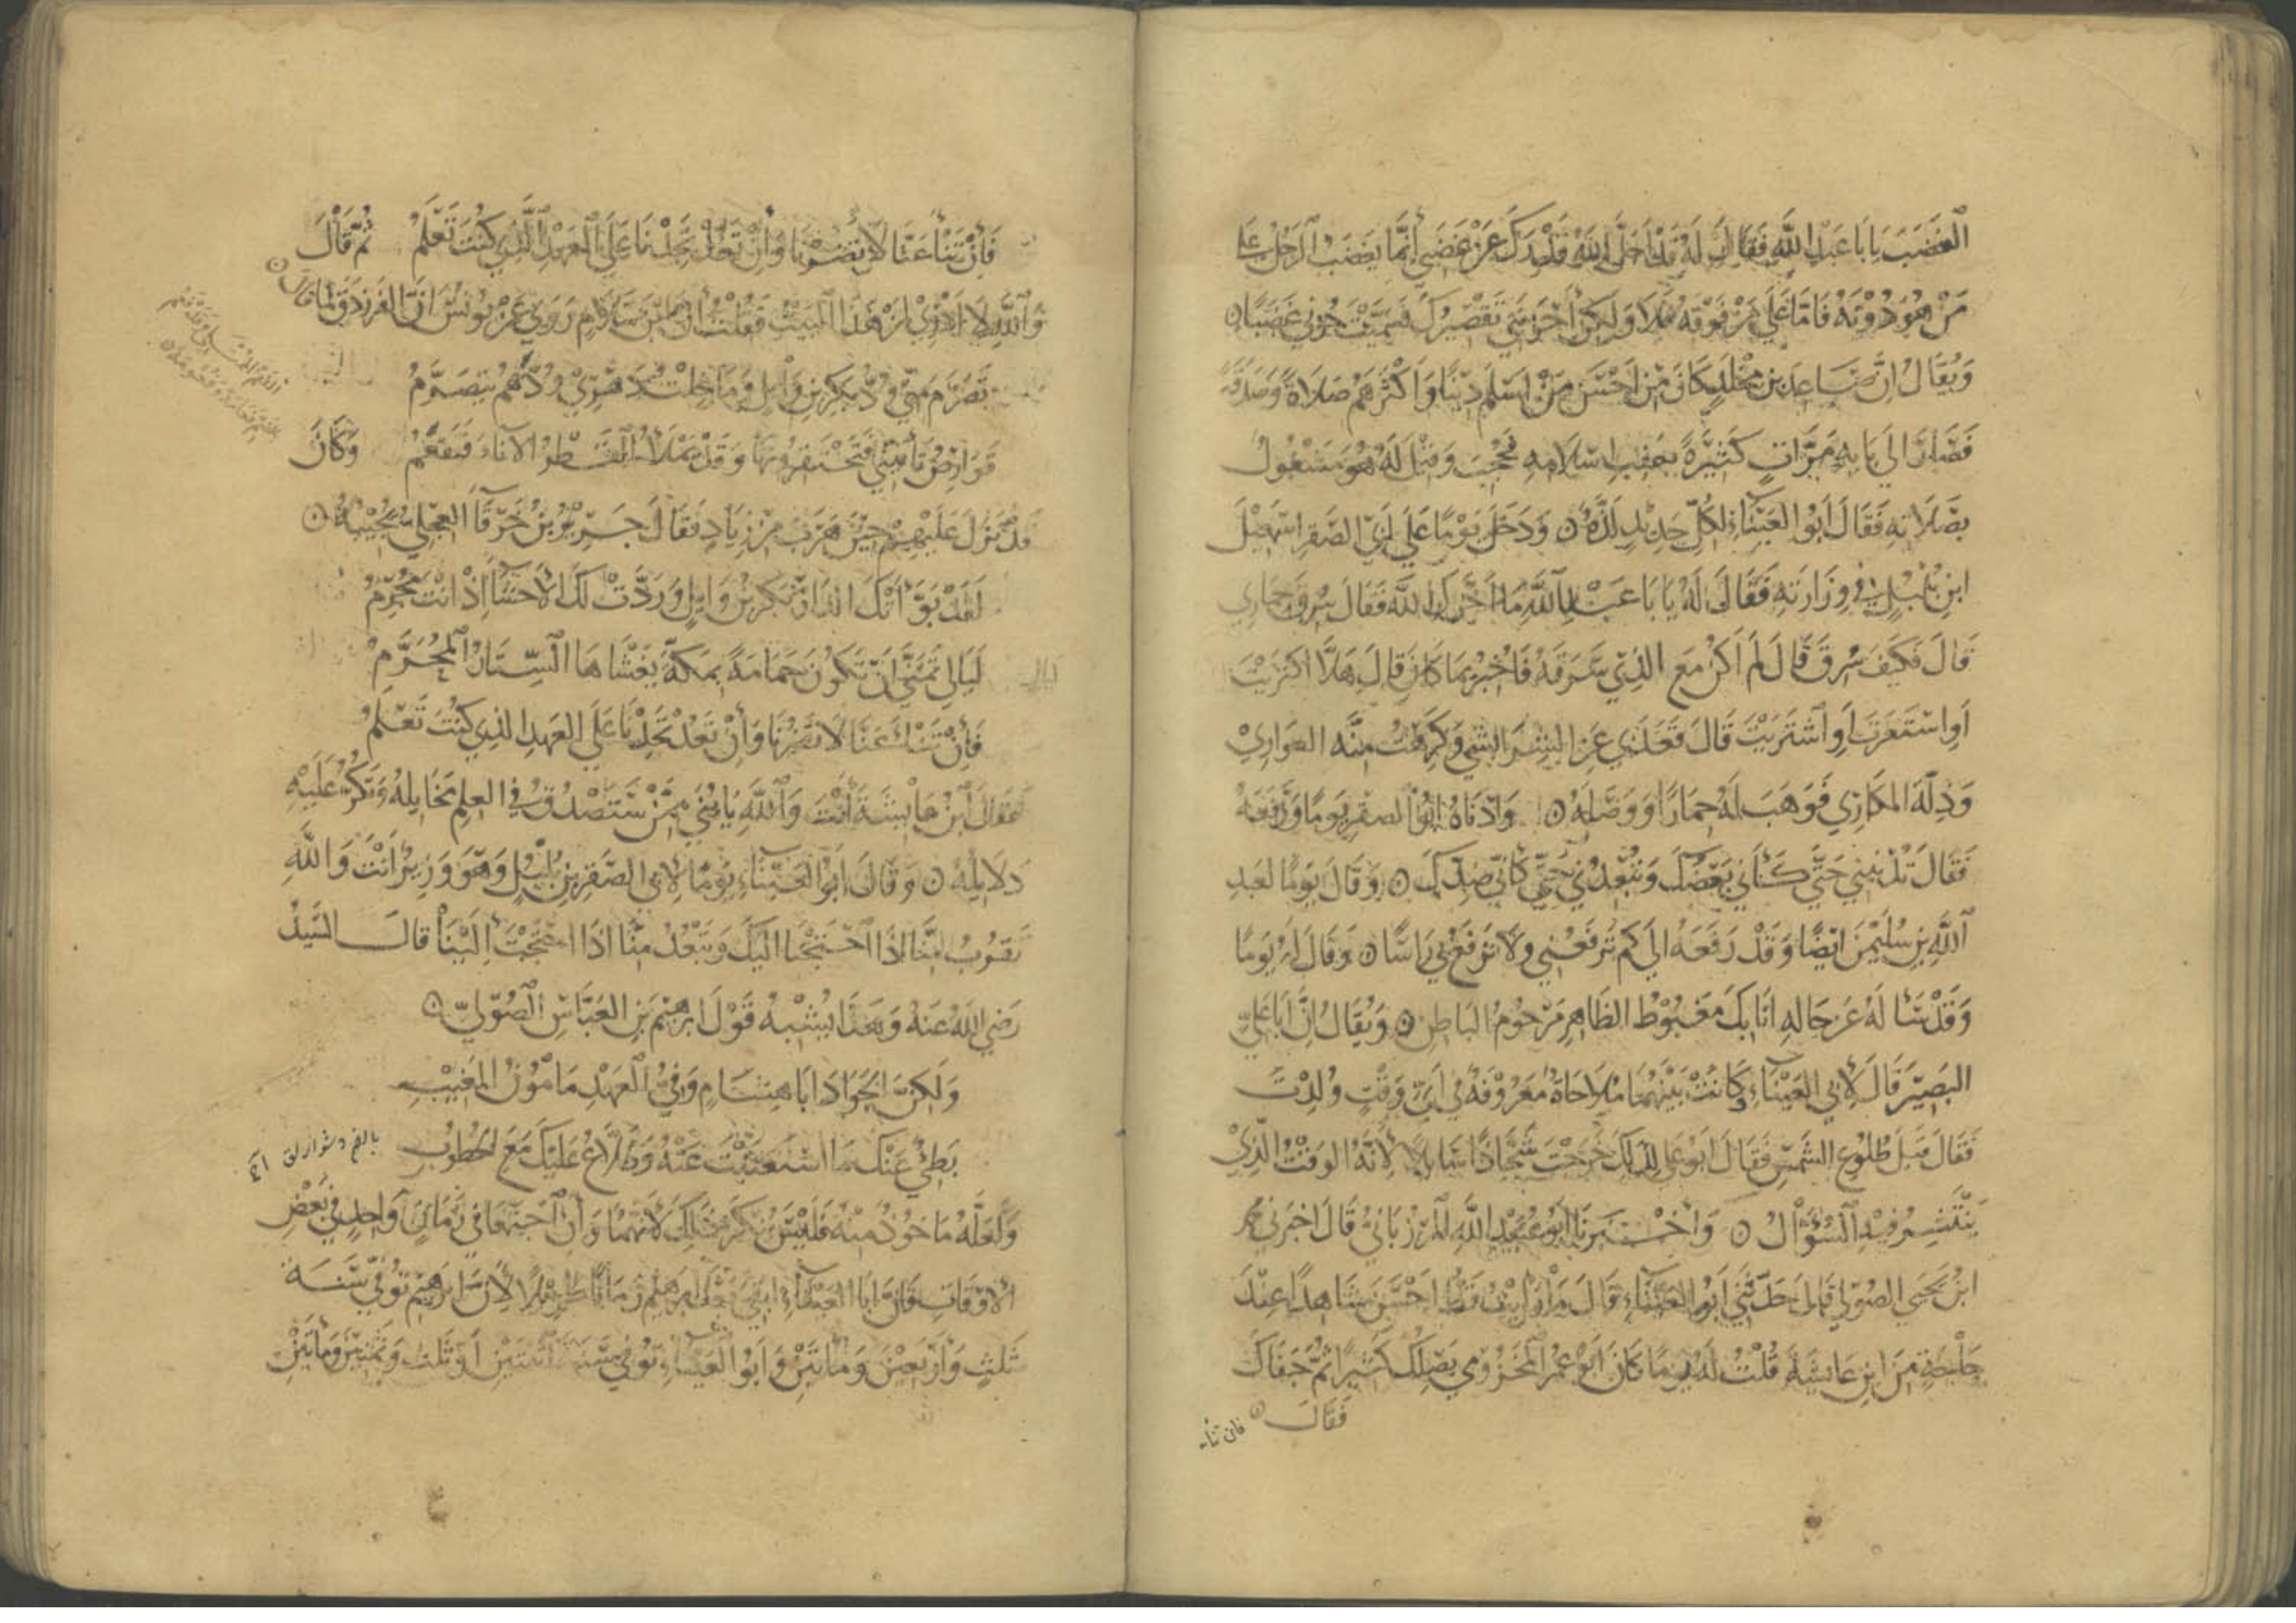 الغَضَبَ يا با عَبدِ اللهِ فقالَ لَهُ قَد أجَلَّ اللهُ قَدرَكَ عَن غَضَبي إنَّما يَغضَبُ الرَجُلُ على
مَن هُوَ دُونَهُ فَامّا عَلى مَن فَوقَهُ فَلا وَلكِن أحزَنَني تَقصِيرُكَ فسَمَّيتَ حُزني غَضَبًا
وَيُقالُ إنَّ صَاعِدَ بنَ مَخْلَدٍ كانَ مِن أحسَنِ مَن أسلَمَ دِينًا وَأكثَرِهِم صَلاةً وَصَدَقَةً
فَصَارَ إلى بابِهِ مَرّاتٍ كَثِيرَةً بعَقِبِ إسلامِهِ فحُجِبَ وَقيلَ لَهُ هُوَ مَشغُولٌ
بصَلاتِهِ فَقالَ أبُو العَيناءِ لِكُلِّ جَدِيدٍ لَذّةٌ ۞ وَدَخَلَ يَومًا عَلى أبي الصَقرِ إسمعِيلَ
ابنِ بُلبُلٍ في وِزارَتِهِ فَقالَ لَهُ يا با عَبدِ اللهِ ما أخَّرَكَ اللهَ فقالَ سُرِقَ حِمَاري
قالَ فكَيفَ سُرِقَ قالَ لَم أكُن مَعَ الّذي سَرَقَهُ فأُخبِرَ بما كانَ قالَ هَلّا اكتَرَيتَ
أوِ استَعَرتَ أوِ اشتَرَيتَ قالَ قَعَدَ بي عَنِ الشِرَا الشِحُّ وَكَرِهتُ مِنَّةَ العَوارِي
وَذِلّةَ المُكارِي فَوَهَبَ لَهُ حِمارًا وَوَصَلَهُ ۞ وَأدناهُ أبُو الصَقرِ يَومًا وَرَفَعَهُ
فَقالَ تُدنِيني حَتّى كَأنّي بَعضُكَ وَتُبعِدُني حَتّى كأنّي ضِدُّكَ ۞ وَقالَ يَومًا لعَبدِ
اللهِ بنِ سُلَيمنَ أيضًا وَقَد رَفَعَهُ إلى كَم تَرفَعُني وَلا تَرفَعُ بي رَاسًا ۞ وَقالَ لهُ يَومًا
وَقَد سَألَهُ عَن حالِهِ أنا بِكَ مَغبُوطُ الظاهِرِ مَرحُومُ الباطِنِ ۞ وَيُقالُ إنّ أبا عَليٍّ
البَصِيرَ قالَ لأبي العَيناءِ وَكانَت بَينَهُما مُلاحاةٌ مَعرُوفَةٌ في أيِّ وَقتٍ وُلِدتَ
فقالَ قَبلَ طُلُوعِ الشَمسِ فقالَ أبُو عَلي لِذلِكَ خَرَجتَ شَحّاذًا سَايِلًا لأنّهُ الوَقتُ الّذي
يَنتَشِرُ فيهِ السُؤّالُ ۞ وَأخبَرَنا أبُو عُبَيدِ اللهِ المَرزُباني قالَ أخبَرَني محمد
ابنُ يَحيَى الصُولي قالَ حَدَّثَني أبُو العَيناءِ قالَ مَا رَأيتُ قَطُّ أحسَنَ شاهِدًا عِندَ
حَاجَةٍ مِنَ ابنِ عايشَةَ قُلتُ لَهُ يَومًا كانَ أبُو عَمرٍ المَخزُومي يَصِلُكَ كَثيرًا ثُمَّ جَفاكَ
فَقالَ
فان تنأ
فَإن تَنأ عَنّا لا تَضُرنا وَإن تَعُد تَجِدنا عَلى العَهدِ الّذي كُنتَ تَعلَمُ ثُمَّ قالَ
وَاللهِ لا أدري لِمَن هَذا البَيتُ فَقُلتُ إنَّ ابنَ سَلامٍ رَوى عَن يُونُسَ أنَّ الفَرَزدَقَ لمّا قال
تَصَرَّمَ مِنّي وُدُّ بَكرِ بنِ وَايِلٍ وَمَا خِلتُ دَهري وُدَّهُم يتَصَرَّمُ
قَوارِصُ تَأتِيني فَتَحتَقِرُونَها وَقَد يَملَأُ القَطرُ الإناءَ فَيَفعُمُ وَكانَ
قَد نَزَلَ عَلَيهِم حِينَ هَرَبَ مِن زيادٍ فَقالَ جَرِيرُ بنُ خَرقاءَ العِجلي يُجيبُهُ ۞
لَقَد بَوَّأتكَ الدارَ بَكرُ بنُ وَايلٍ وَرَدَّت لَكَ الأحشَاءَ إذ أنتَ مُجرِمُ
لَيالِيَ تَمَنّى أن تَكُونَ حَمامَةً بمَكّةَ يَغشَاها السِّتارُ المُحَرَّمُ
فَإن تَنأ عَنّا لا تَضُرنا وَإن تَعُد تَجِدنا عَلَى العَهدِ الذي كُنتَ تَعلَمُ
فقالَ ابنُ عايشَةَ أنتَ وَاللهِ يا بُنَيَّ مِمَّن تَصدُقُ في العِلمِ مَخايلُهُ وَتَكثُرُ عَلَيهِ
دَلايِلُهُ ۞ وَقالَ أبُو العَيناءِ يَومًا لأبي الصَقرِ بنِ بُلبُلٍ وَهوَ وَزيرٌ أنتَ وَاللهِ
تَقرُبُ مِنّا إذا احتَجنا إلَيكَ وَتَبعُدُ مِنّا إذا احتَجتَ إلَينا قالَ السَّيِّدُ
رَضيَ اللهُ عَنهُ وَهَذا يُشبِهُ قَولَ إبرهِيمَ بنِ العَبّاسِ الصُوليِّ ۞
وَلَكِنَّ الجَوادَ أبا هِشامٍ وَفيُّ العَهدِ مَأمُونُ المَغِيبِ
بَطيءٌ عَنكَ ما استَغنَيتَ عَنهُ وَطَلّاعٌ عَلَيكَ مَعَ الخُطُوبِ
وَلَعَلَّهُ مَاخُوذٌ مِنهُ فَلَيسَ يُنكَرُ ذَلِكَ لأنّهُمَا وَإن اجتَمَعا في زَمانٍ وَاحِدٍ في بَعضِ
الأوقاتِ فَإنَّ أبا العَيناءِ بَقيَ بَعدَ إبرهِيمَ زَمانًا طَوِيلًا لأنَّ إبرهِيمَ تُوُفّيَ سَنَةَ
ثَلثٍ وَأربَعينَ وَمِائتَينِ وَأبُو العَيناءِ تُوُفّيَ سَنَةَ اثنَتَينِ أو ثَلثٍ وَثَمنِينَ وَمِائتَينِ